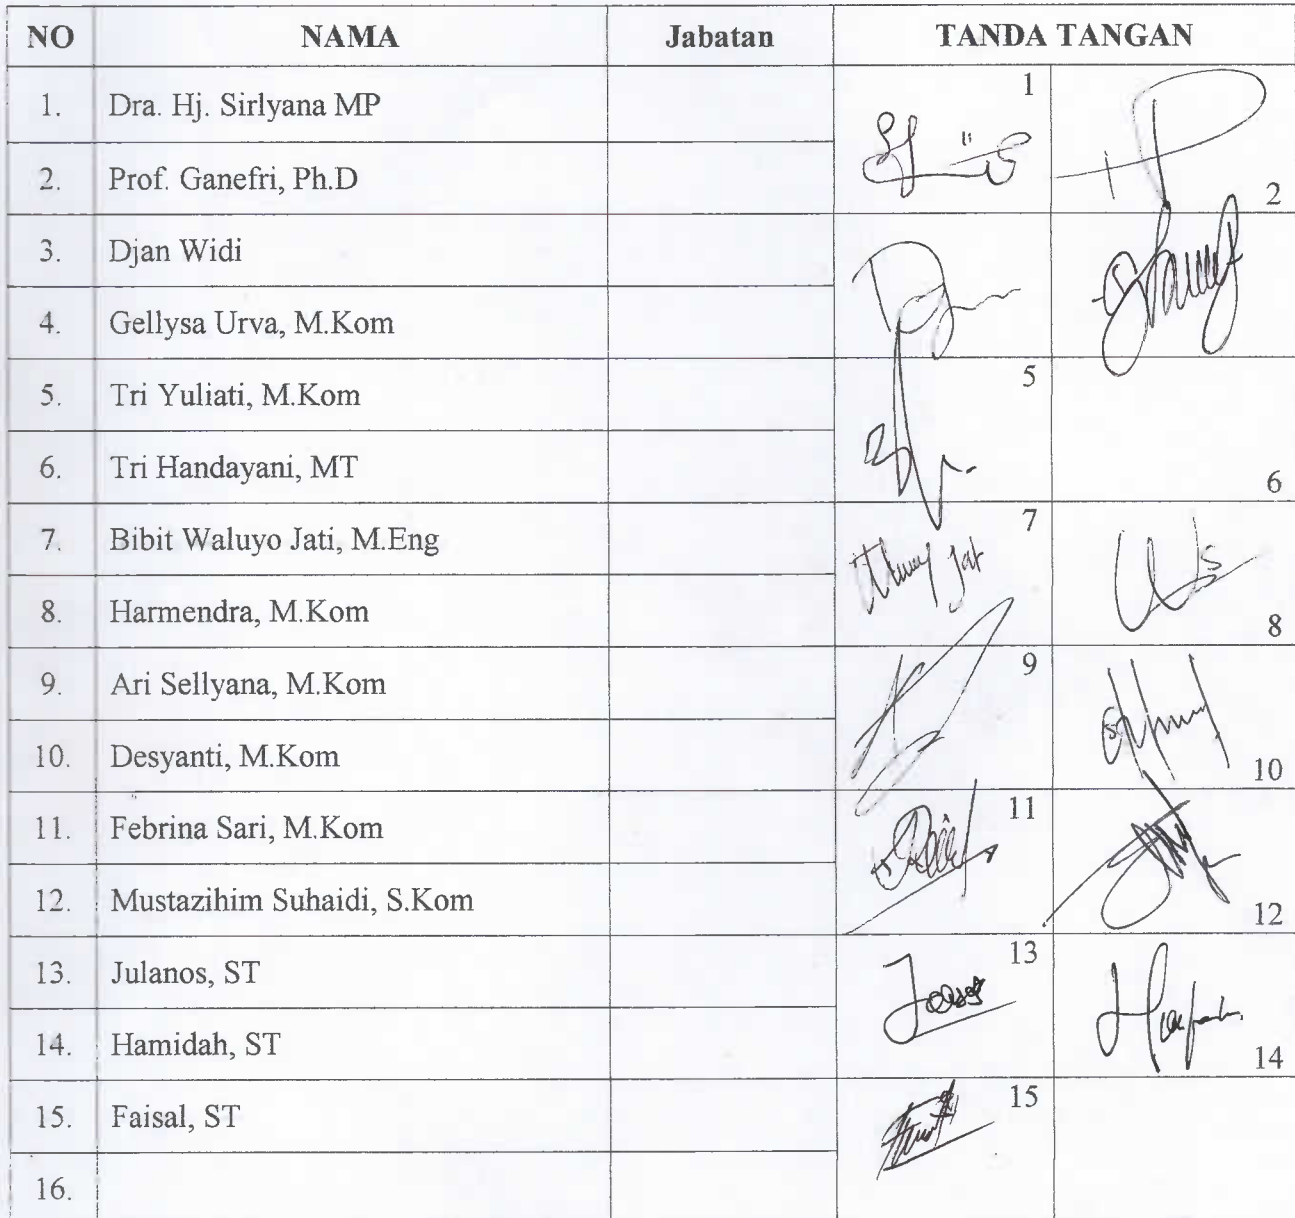 NO NAMA Jabatan TANDA TANGAN
1. Dra. Hj. Sirlyana MP 1
2. Prof. Ganefri, Ph.D 2
3. Djan Widi
4. Gellysa Urva, M.Kom
5. Tri Yuliati, M.Kom 5
6. Tri Handayani, MT 6
7. Bibit Waluyo Jati, M.Eng 7
8. Harmendra, M.Kom 8
9. Ari Sellyana, M.Kom 9
10. Desyanti, M.Kom 10
11. Febrina Sari, M.Kom 11
12. Mustazihim Suhaidi, S.Kom 12
13. Julanos, ST 13
14. Hamidah, ST 14
15. Faisal, ST 15
16.